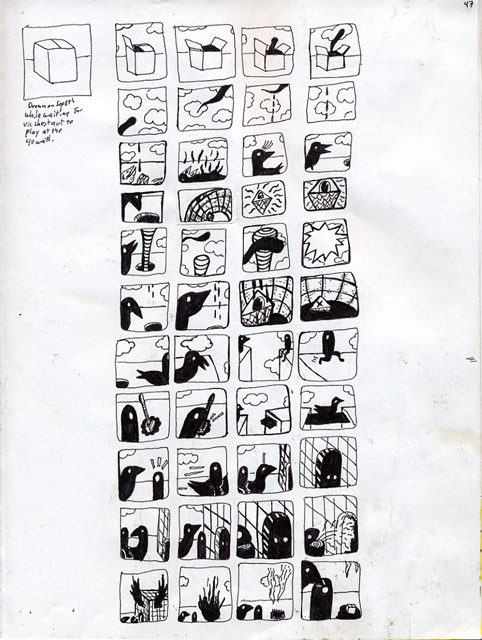 47
Drawn on Sept 14
while waiting for
vic chestnut to
play at the
40 watt.